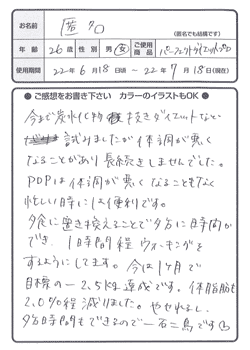 お名前 匿名
(匿名でも結構です)
年齢 26歳 性別 男・女 ご使用商品 パーフェクトダイエットPDP
使用期間 22年6月18日頃 ～ 22年7月18日(現在)
●ご感想をお書き下さい カラーのイラストもOK●
今まで炭水化物抜きダイエットなど
試みましたが体調が悪く
なることがあり長続きしませんでした。
PDPは体調が悪くなることもなく
忙しい時には便利です。
夕食に置き換えることで夕方に時間が
でき、1時間程ウォーキングを
するようにしてます。今は1ヶ月で
目標の-2.5kg達成です。体脂肪も
2.0%程減りました。やせれるし、
夕方時間もできるので一石二鳥です